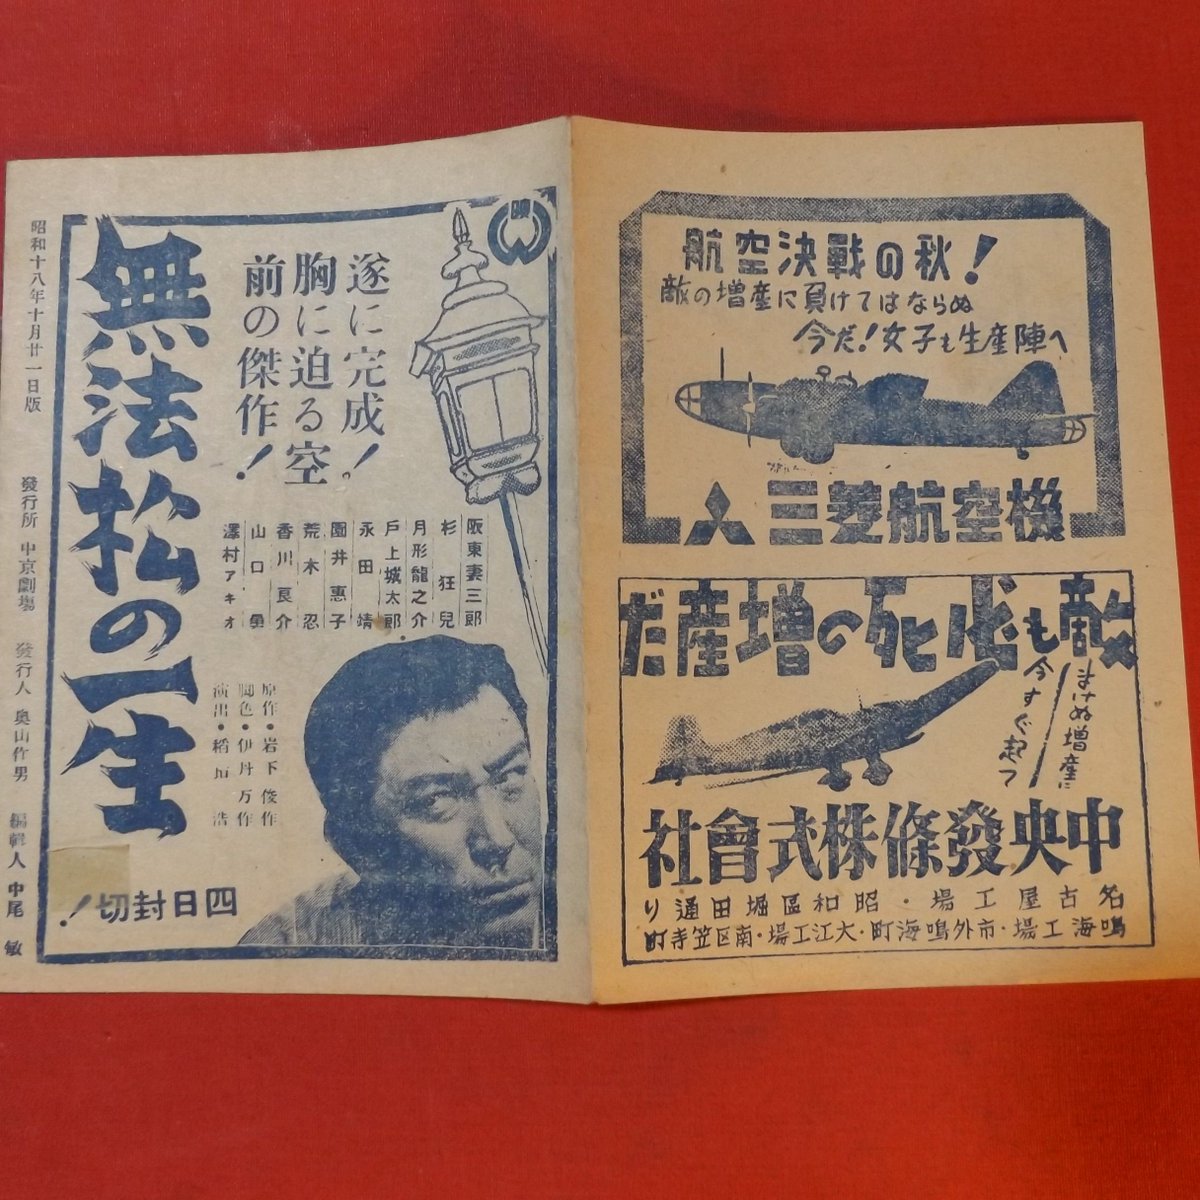 昭和十八年十月廿一日版 發行所 中京劇場 發行人 奥山作男 編輯人 中尾 敏
遂に完成！
胸に迫る空
前の傑作！
無法松の一生
阪東妻三郎
杉狂兒
月形龍之介
戸上城太郎
永田靖
園井惠子
荒木忍
香川良介
山口勇
澤村アキオ
原作・岩下俊作
脚色・伊丹万作
演出・稲垣浩
四日封切！
航空決戰の秋！
敵の増産に負けてはならぬ
今だ！女子も生産陣へ
三菱航空機
敵も必死の増産だ
まけぬ増産に
今すぐ起て
中央發條株式會社
名古屋工場・昭和區堀田通り
鳴海工場・市外鳴海町・大江工場・南区笠寺町